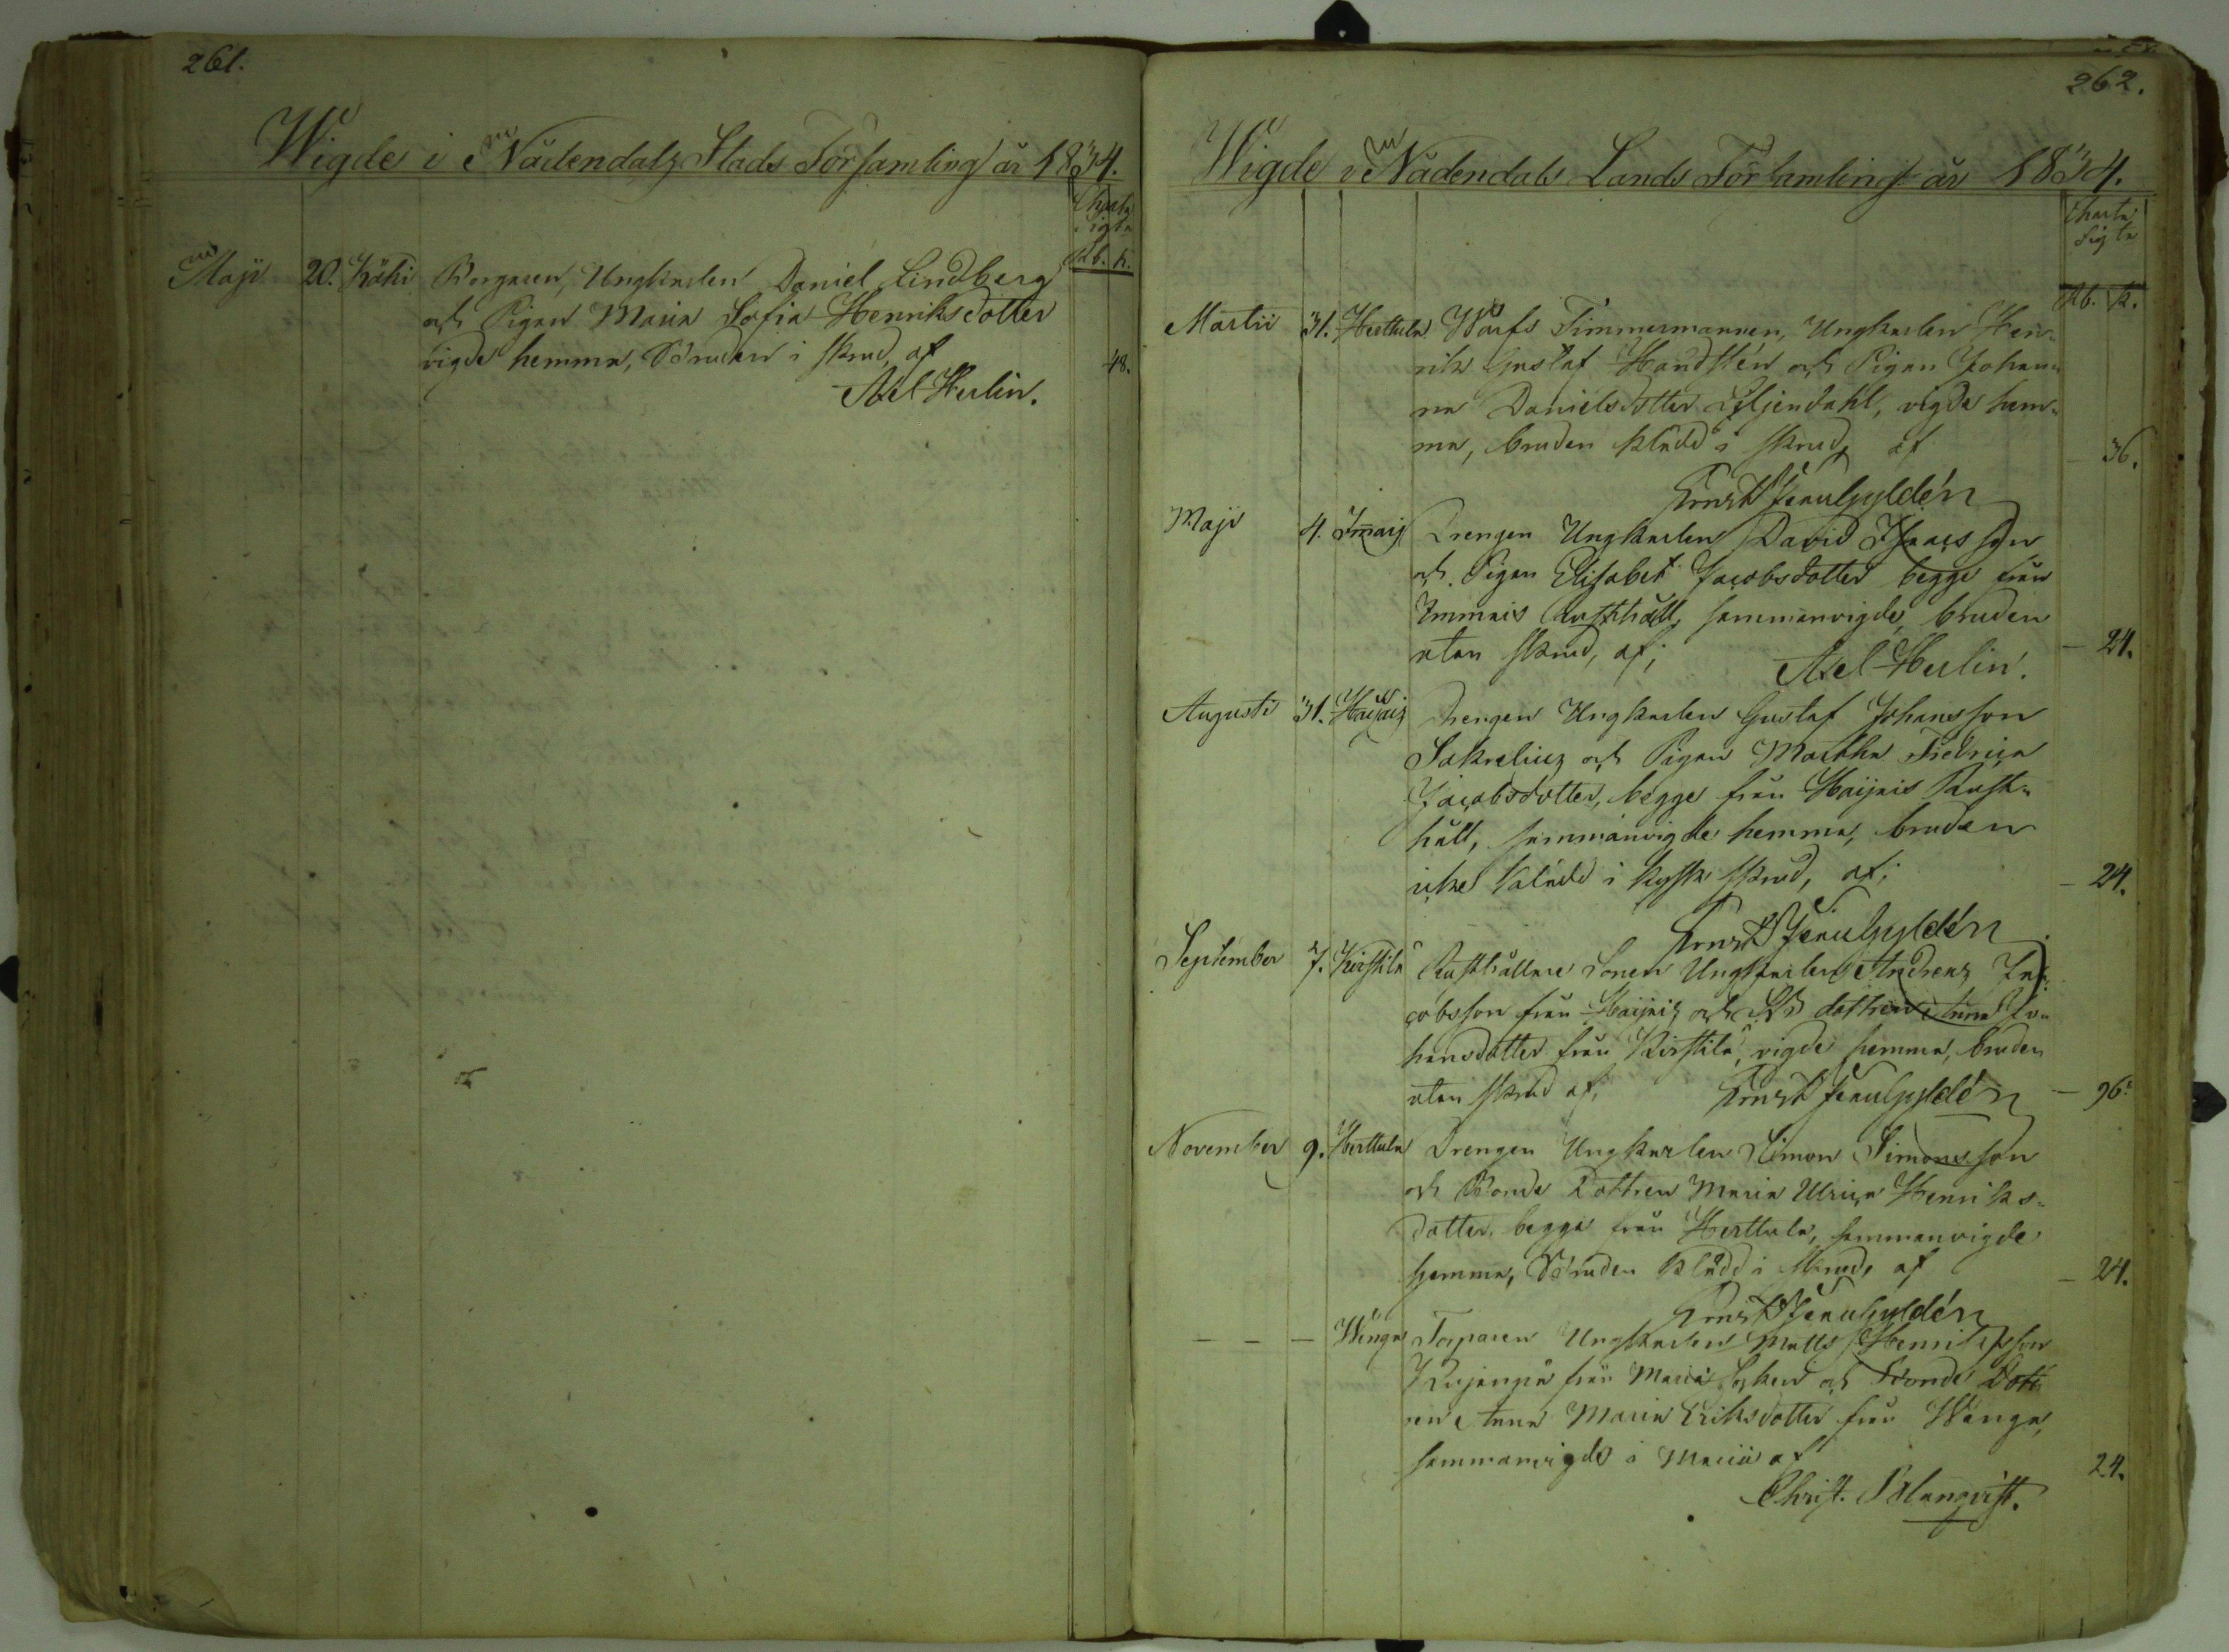 261.
Wigde i Nådendalz Stads Församling år 1834.
Charta
Sigta
Rb. k.
Maji 20. Köhi Borgaren, Ungkarlen Daniel Lindberg
och Pigan Maria Sofia Henriksdotter
vigde hemma, Bruden i skrud, af 48.
Axel Herlin.
262.
Wigde i Nådendals Lands Församling år 1834.
Charta
Sigta
Rb. k.
Martii 31. Herttula Warfs Timmermannen, Ungkarlen Hen-
rik Gustaf Sandstén och Pigan Johan-
na Danielsdotter Liljendahl, vigde hem-
ma, bruden klädd i skrud, af 36.
Ernst Gyldén
Maji 4. Immais Drengen Ungkarlen David Isaacsson
och Pigan Elisabet Jacobsdotter begge från
Immais Rusthåll, sammanvigde, bruden
utan skrud, af; — 24.
Axel Herlin.
Augusti 31. Haijais Drengen Ungkarlen Gustaf Johansson
Sakrelius och Pigan Martha Fredrica
Jacobsdotter, begge från Haijais Rust-
håll, sammanvigde hemma, bruden
icke klädd i kysk skrud, af; — 24.
Ernst Gyldén
September 7. Kirstila Rusthållare Sonen Ungkarlen Andreas Ja-
cobsson från Haijais och dottren Anna Jo-
hansdotter från Kirstila, vigde hemma, bruden
utan skrud af; Ernst Gyldén — 96.
November 9. Herttula Drengen Ungkarlen Simon Simonsson
och Bonde Dottren Maria Ulrica Henriks-
dotter, begge från Herttula, sammanvigde
hemma, Bruden klädd i skrud, af — 24.
Ernst Gyldén
— — — Wänga Torparen Ungkarlen Matts Henriksson
från Maria Socken och Bonde Dott-
ren Anna Maria Eriksdotter från Wänga,
sammanvigde i Maria af 24.
Christ. Blanqvist.